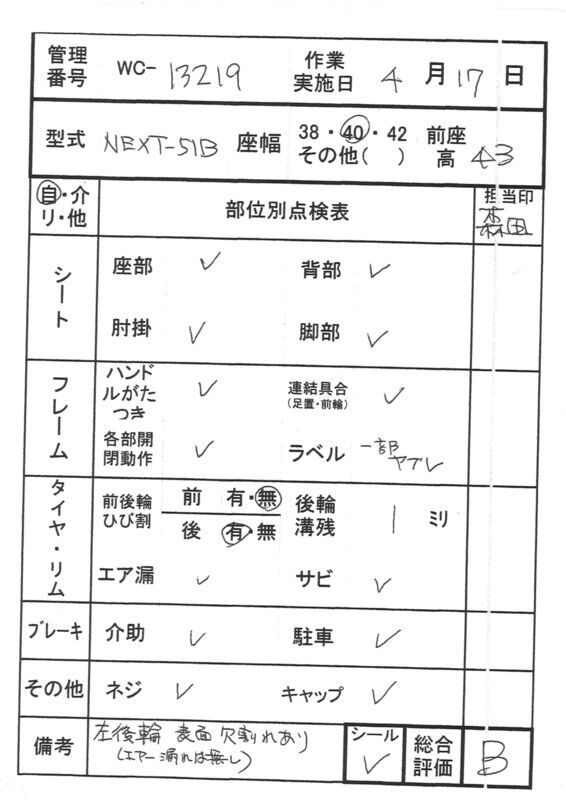 管理番号 WC- 13219 作業実施日 4 月 17 日
型式 NEXT-51B 座幅 38・40・42 その他( ) 前座高 43
自・介リ・他 部位別点検表 担当印 森田
シート 座部 ✓ 背部 ✓
肘掛 ✓ 脚部 ✓
フレーム ハンドルがたつき ✓ 連結具合(足置・前輪) ✓
各部開閉動作 ✓ ラベル 一部ヤブレ
タイヤ・リム 前後輪ひび割 前 有・無 後輪溝残 1 ミリ
後 有・無
エア漏 ✓ サビ ✓
ブレーキ 介助 ✓ 駐車 ✓
その他 ネジ ✓ キャップ ✓
備考 左後輪 表面 欠割れあり シール ✓ 総合評価 B
(エアー漏れは無し)